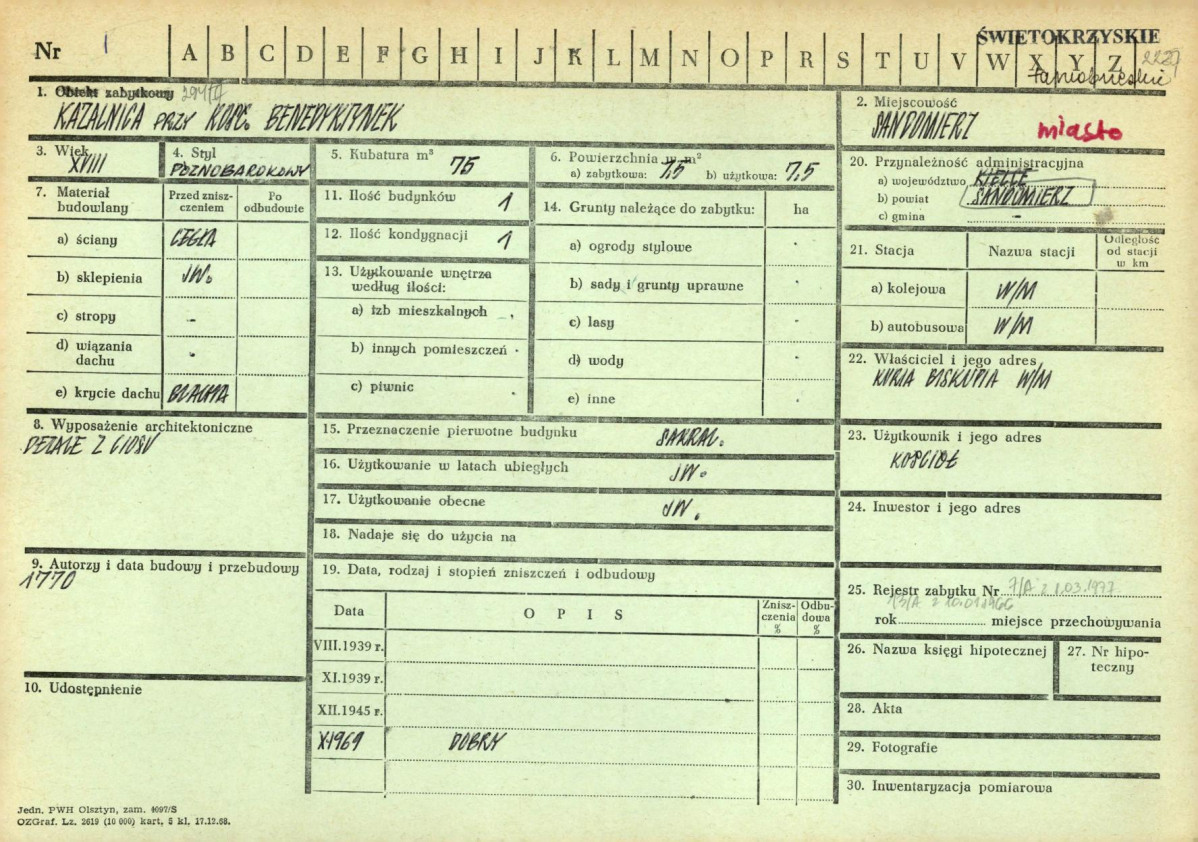 Nr 1 A B C D E F G H I J K L M N O P R S T U V W X Y Z
ŚWIĘTOKRZYSKIE
tarnobrzeskie
1. Obiekt zabytkowy
KAZALNICA PRZY KOŚC. BENEDYKTYNEK
2. Miejscowość
SANDOMIERZ miasto
3. Wiek
XVIII
4. Styl
PÓŹNOBAROKOWY
5. Kubatura m³ 75
6. Powierzchnia w m²
a) zabytkowa: 7,5 b) użytkowa: 7,5
7. Materiał budowlany
Przed zniszczeniem
Po odbudowie
a) ściany CEGŁA
b) sklepienia JW.
c) stropy -
d) wiązania dachu -
e) krycie dachu BLACHA
8. Wyposażenie architektoniczne
DETALE Z CIOSU
9. Autorzy i data budowy i przebudowy
1770
10. Udostępnienie
11. Ilość budynków 1
12. Ilość kondygnacji 1
13. Użytkowanie wnętrza według ilości:
a) izb mieszkalnych -
b) innych pomieszczeń -
c) piwnic -
14. Grunty należące do zabytku: ha
a) ogrody stylowe -
b) sady i grunty uprawne -
c) lasy -
d) wody -
e) inne -
15. Przeznaczenie pierwotne budynku SAKRAL.
16. Użytkowanie w latach ubiegłych JW.
17. Użytkowanie obecne JW.
18. Nadaje się do użycia na
19. Data, rodzaj i stopień zniszczeń i odbudowy
Data OPIS Zniszczenia % Odbudowa %
VIII.1939 r.
XI.1939 r.
XII.1945 r.
X.1969 DOBRY
20. Przynależność administracyjna
a) województwo KIELCE
b) powiat SANDOMIERZ
c) gmina -
21. Stacja Nazwa stacji Odległość od stacji w km
a) kolejowa W/M
b) autobusowa W/M
22. Właściciel i jego adres
KURIA BISKUPIA W/M
23. Użytkownik i jego adres
KOŚCIÓŁ
24. Inwestor i jego adres
25. Rejestr zabytku Nr 7/A z 1.03.1977
13/A z 10.01.1966
rok miejsce przechowywania
26. Nazwa księgi hipotecznej
27. Nr hipoteczny
28. Akta
29. Fotografie
30. Inwentaryzacja pomiarowa
Jedn. PWH Olsztyn, zam. 4097/S
OZGraf. Lz. 2619 (10 000) kart. 5 kl. 17.12.68.